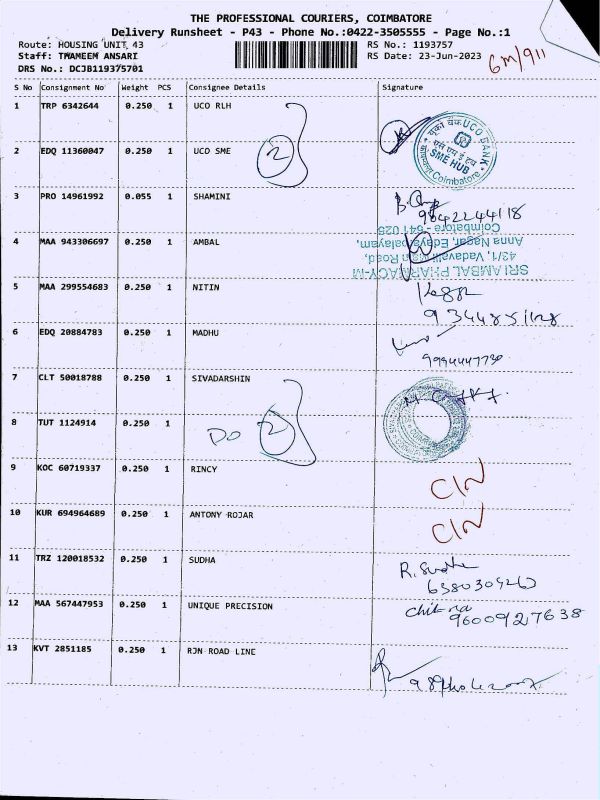 THE PROFESSIONAL COURIERS, COIMBATORE
Delivery Runsheet - P43 - Phone No.:0422-3505555 - Page No.:1
Route: HOUSING UNIT 43 RS No.: 1193757
Staff: THAMEEM ANSARI RS Date: 23-Jun-2023
DRS No.: DCJB119375701
6m/911
S No Consignment No Weight PCS Consignee Details Signature
1 TRP 6342644 0.250 1 UCO RLH
UCO BANK
SME HUB
Coimbatore
2 EDQ 11360047 0.250 1 UCO SME
2
3 PRO 14961992 0.055 1 SHAMINI
9842244118
4 MAA 943306697 0.250 1 AMBAL
SRI AMBAL PHARMACY-M
43/1, Vadavalli Main Road,
Anna Nagar, Edayarpalayam,
Coimbatore - 641 025
5 MAA 299554683 0.250 1 NITIN
6 EDQ 20884783 0.250 1 MADHU
9994447730
7 CLT 50018788 0.250 1 SIVADARSHIN
8 TUT 1124914 0.250 1 DO 2
9 KOC 60719337 0.250 1 RINCY
10 KUR 694964689 0.250 1 ANTONY ROJAR
11 TRZ 120018532 0.250 1 SUDHA R. Sudha
6380309260
12 MAA 567447953 0.250 1 UNIQUE PRECISION
9600927638
13 KVT 2851185 0.250 1 RJN ROAD LINE